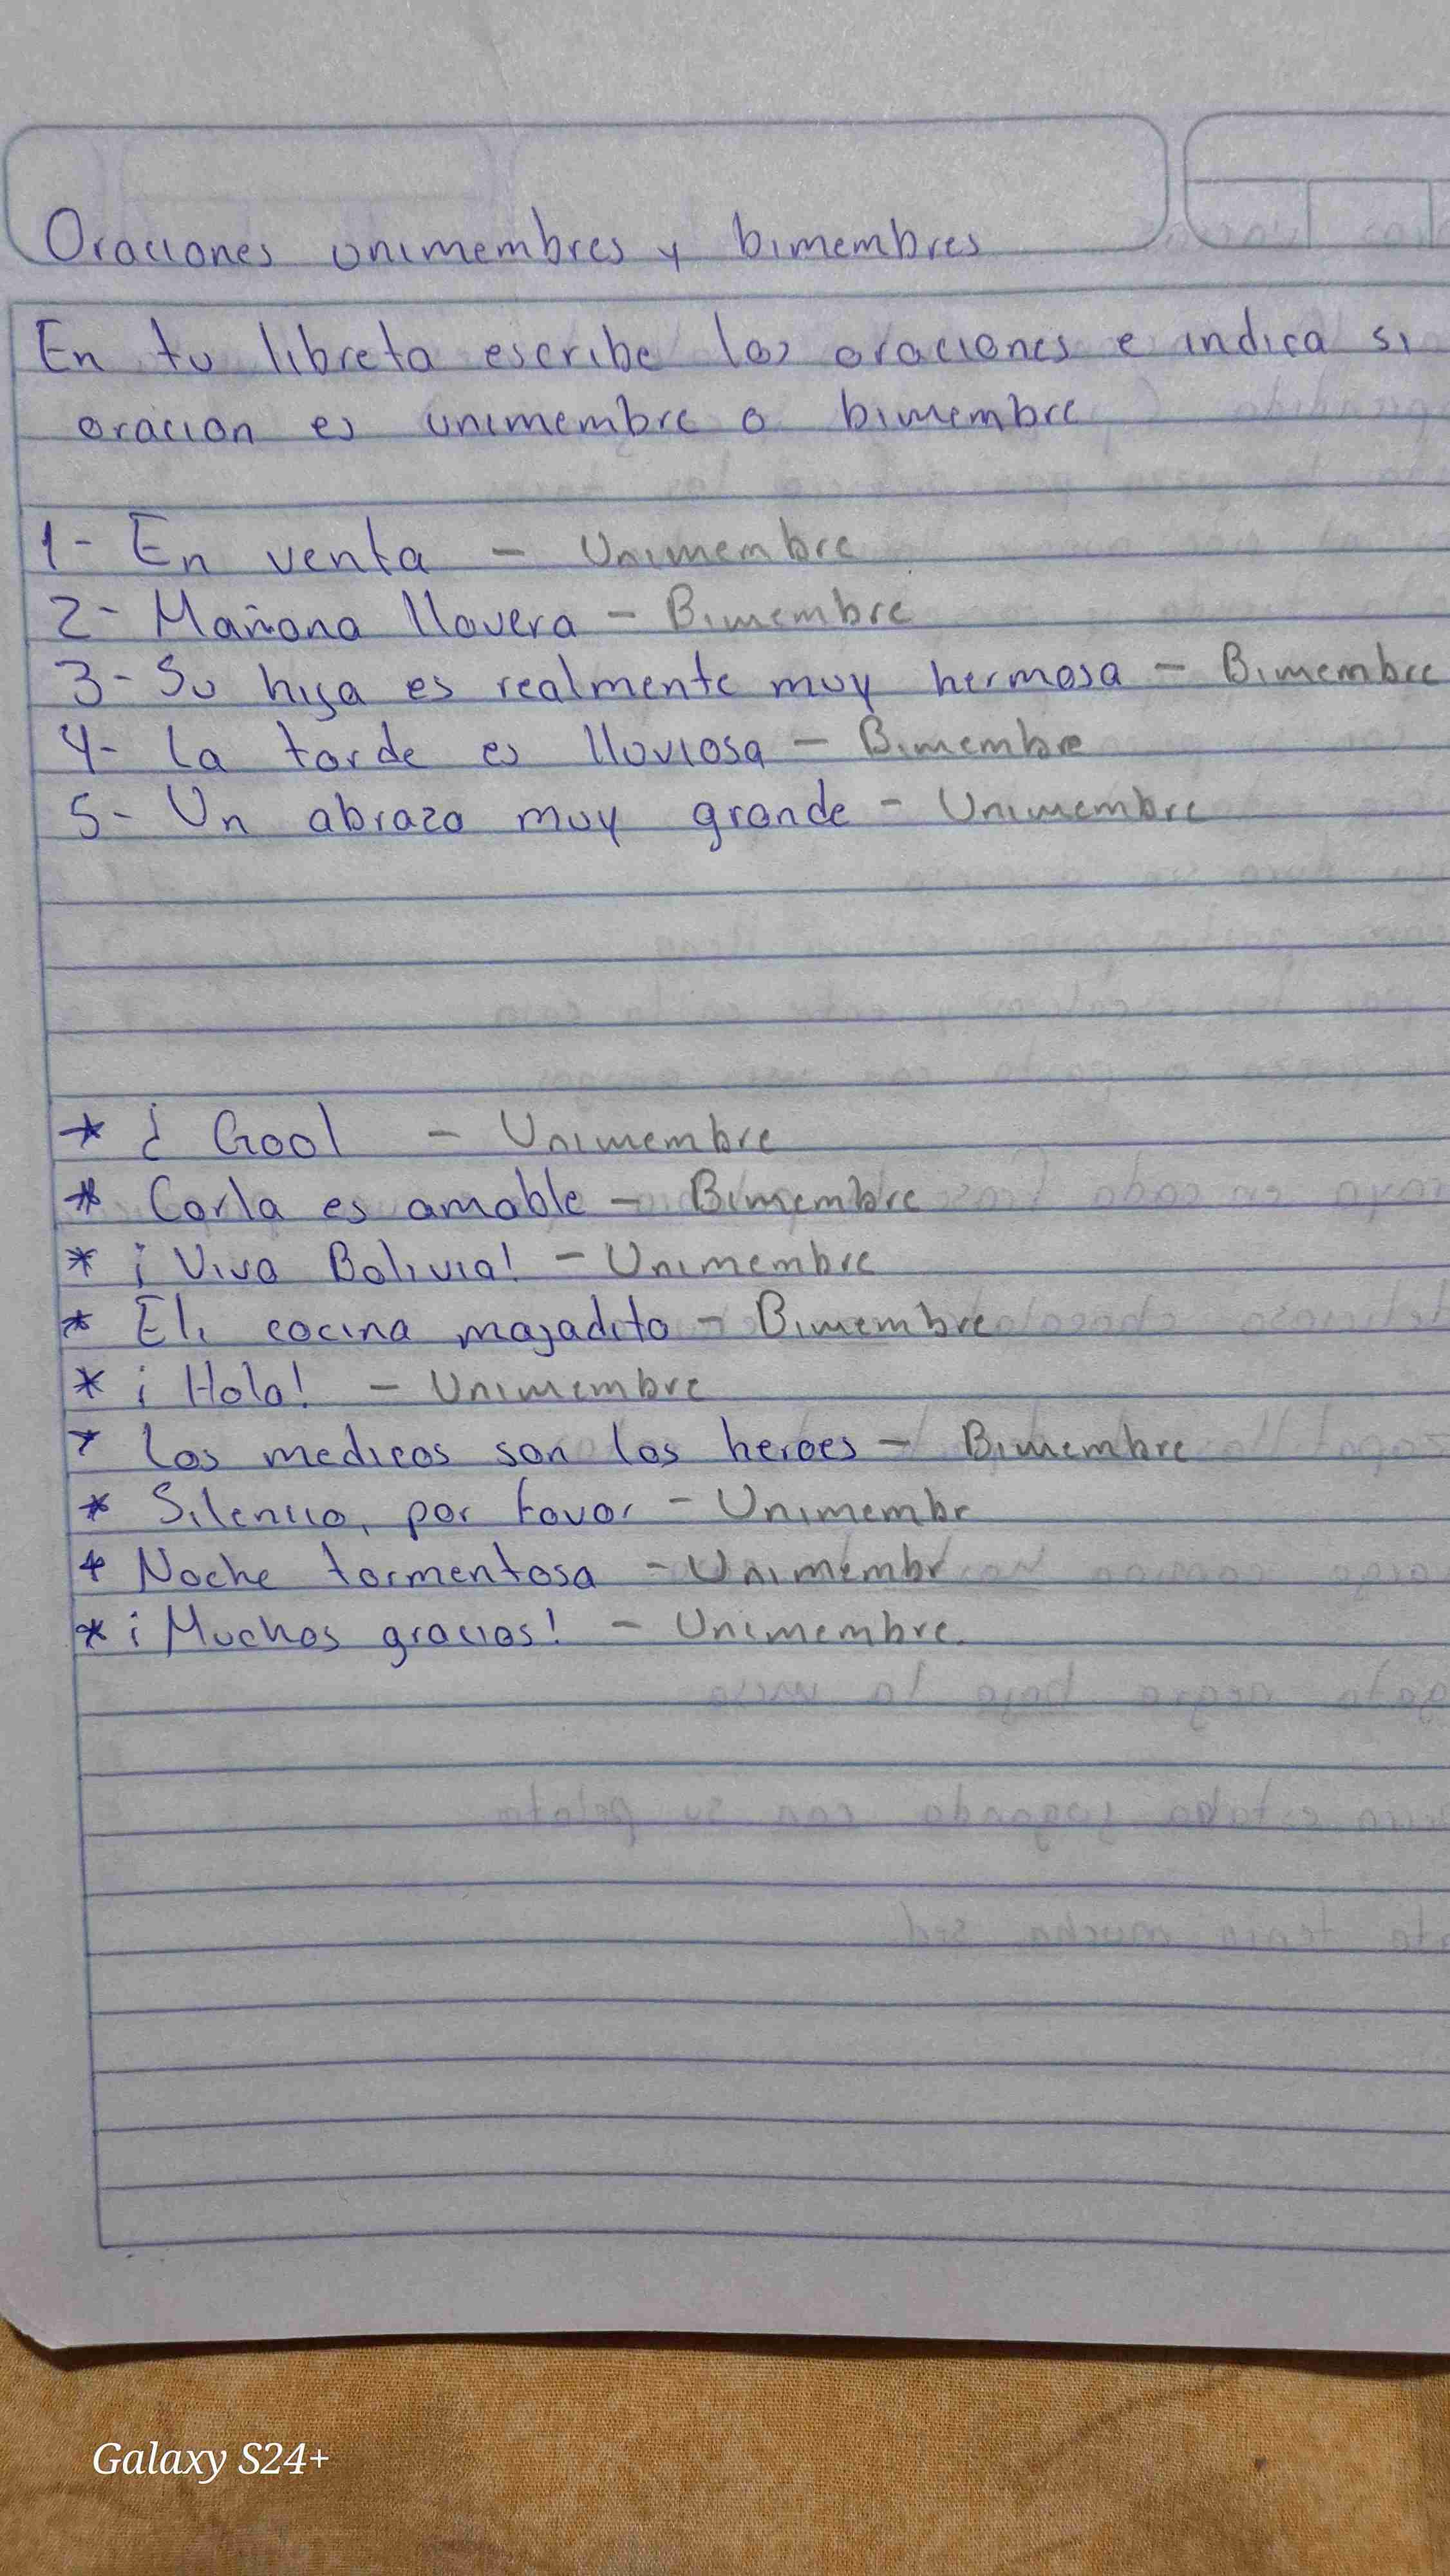 Oraciones unimembres y bimembres
En tu libreta escribe las oraciones e indica si
oracion es unimembre o bimembre
1- En venta - Unimembre
2- Mañana llovera - Bimembre
3- Su hija es realmente muy hermosa - Bimembre
4- La tarde es lluviosa - Bimembre
5- Un abrazo muy grande - Unimembre
* ¿ Gool - Unimembre
* Carla es amable - Bimembre
* ¡Viva Bolivia! - Unimembre
* Eli cocina majadito - Bimembre
* ¡Hola! - Unimembre
* Los medicos son los heroes - Bimembre
* Silencio, por favor - Unimembr
* Noche tormentosa - Unimembr
* ¡Muchas gracias! - Unimembre.
Galaxy S24+